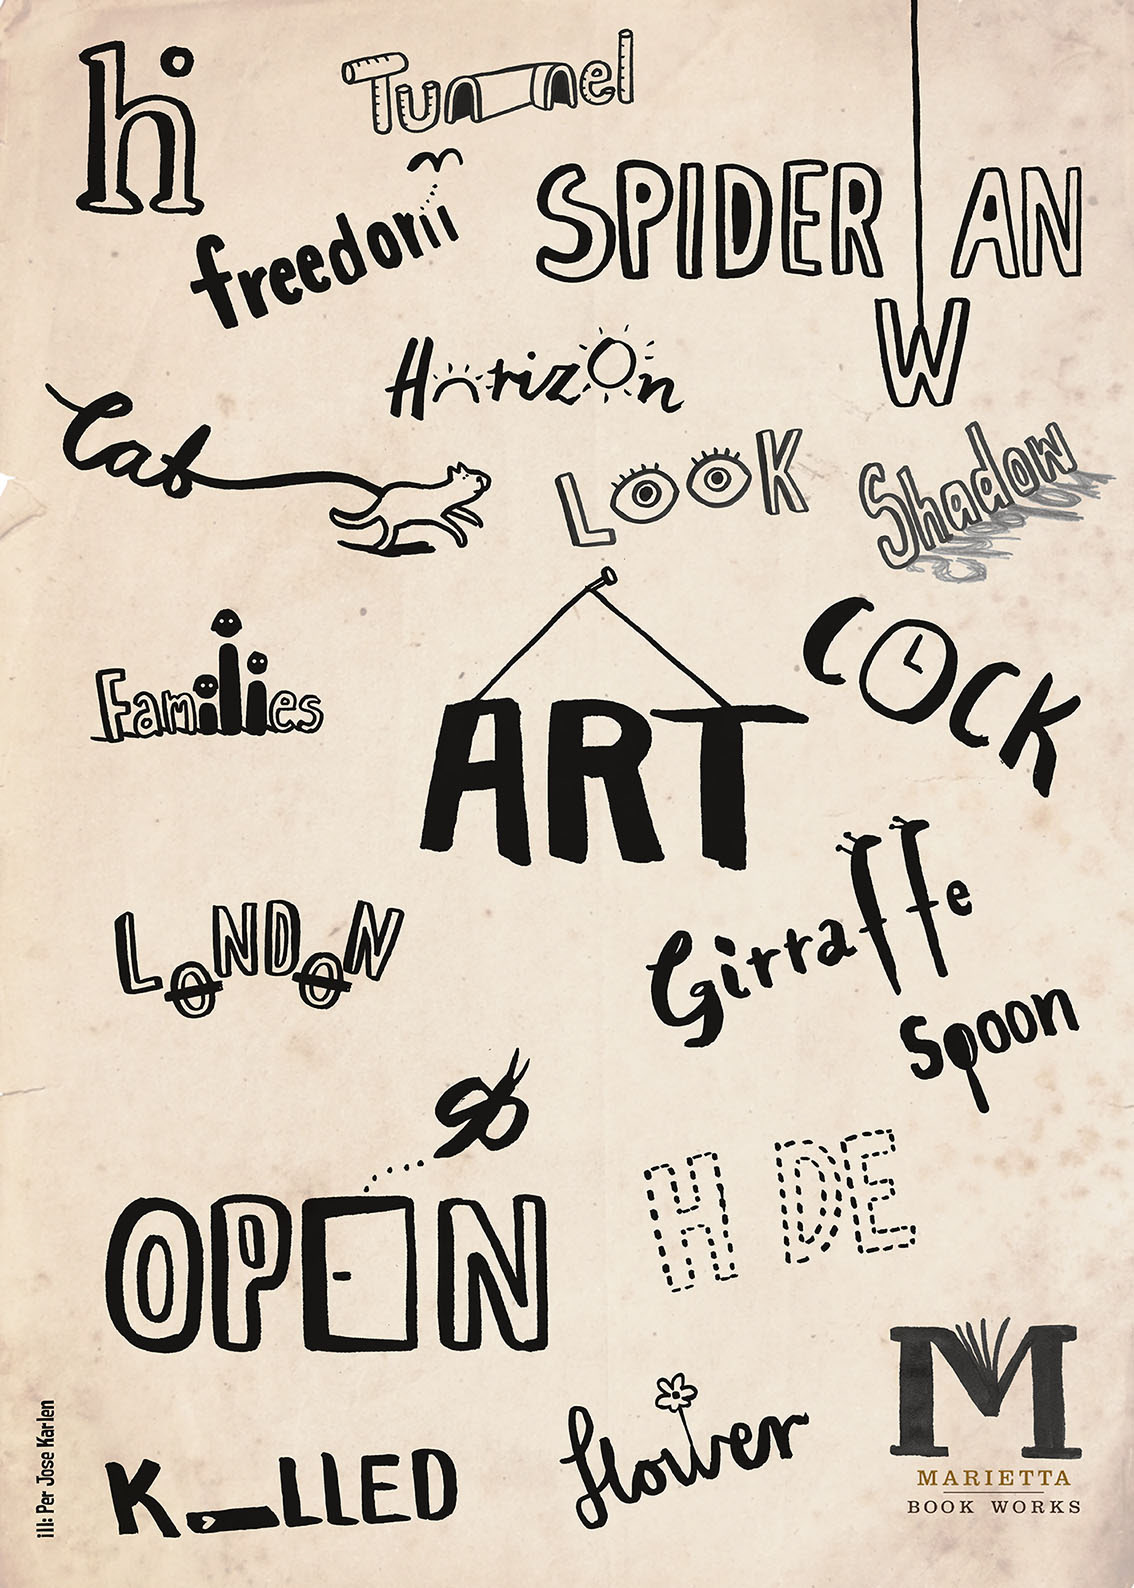 hi
Tunnel
freedom
SPIDERMAN
HorizOn
Cat
LOOK
Shadow
Families
ART
CLOCK
LONDON
Girraffe
Spoon
OPEN
H DE
KILLED
flower
M
MARIETTA
BOOK WORKS
ill: Per Jose Karlen